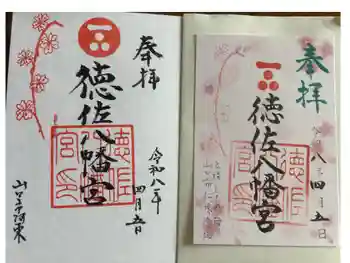 奉拝
徳佐八幡宮
令和八年
四月五日
山口市阿東
徳佐八幡宮
奉拝
徳佐八幡宮
八年四月五日